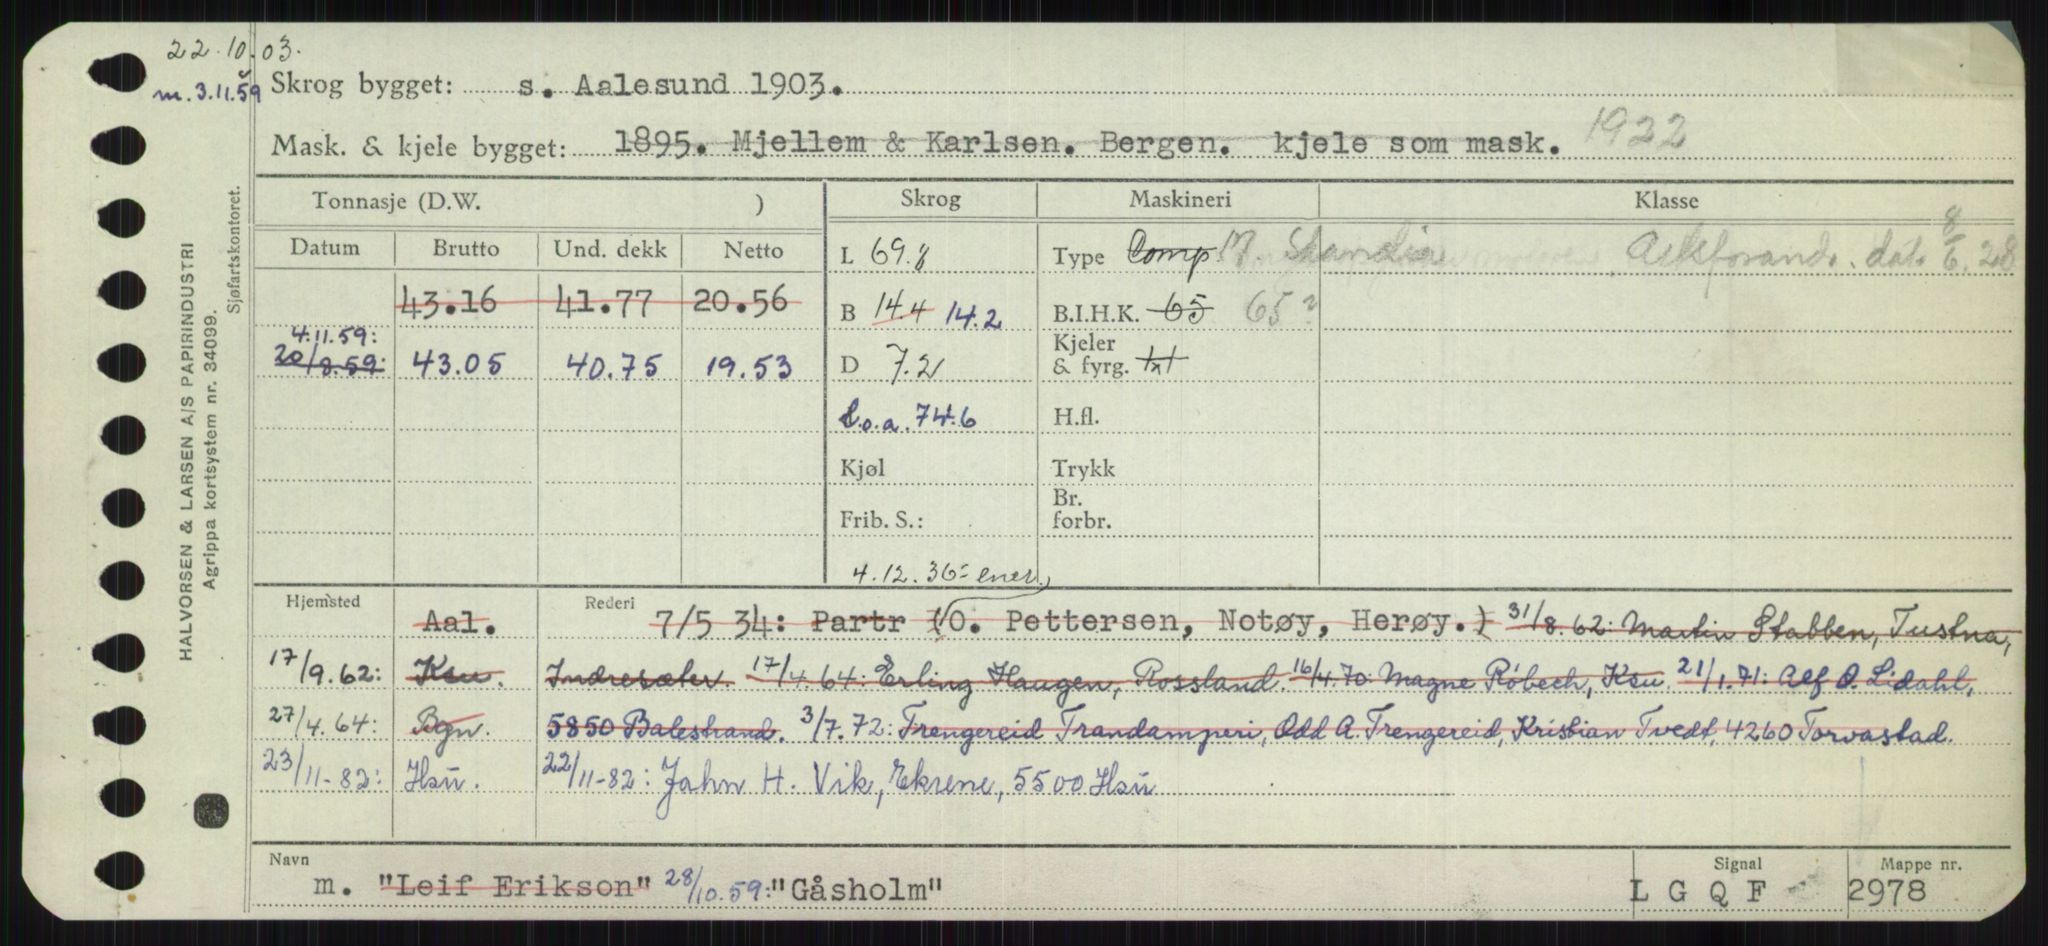 22.10.03.
m. 3.11.59
Skrog bygget: s. Aalesund 1903.
Mask. & kjele bygget: 1895. Mjellem & Karlsen. Bergen. kjele som mask. 1922
Tonnasje (D.W. ) Skrog Maskineri Klasse
Datum Brutto Und. dekk Netto
L 69.8 Type Comp M. Skandia Aktsforand. dat. 8/6.28
43.16 41.77 20.56 B 14.4 14.2 B.I.H.K. 65 65?
4.11.59:
20/8.59: 43.05 40.75 19.53 D 7.2 Kjeler & fyrg. 1x1
L.o.a. 74.6 H.fl.
Kjøl Trykk
Frib. S.: Br. forbr.
4.12.36- ener.
Hjemsted Rederi
Aal. 7/5 34: Partr (O. Pettersen, Notøy, Herøy.) 31/8.62: Martin Stabben, Tustna,
17/9.62: Ksu. Indresæter. 17/4.64: Erling Haugen, Rossland. 16/4.70: Magne Róbech, Ksu. 21/1.71: Alf O. Lidahl,
27/4.64: Bgn. 5850 Balestrand. 3/7.72: Trengereid Trandamperi, Odd A. Trengereid, Kristian Tvedt, 4260 Torvastad.
23/11-82: Hsū. 22/11-82: Jahn H. Vik, Ekrene, 5500 Hsū
Navn Signal Mappe nr.
m. "Leif Erikson" 28/10.59: "Gåsholm" L G Q F 2978
HALVORSEN & LARSEN A/S PAPIRINDUSTRI
Agrippa kortsystem nr. 34099.
Sjøfartskontoret.